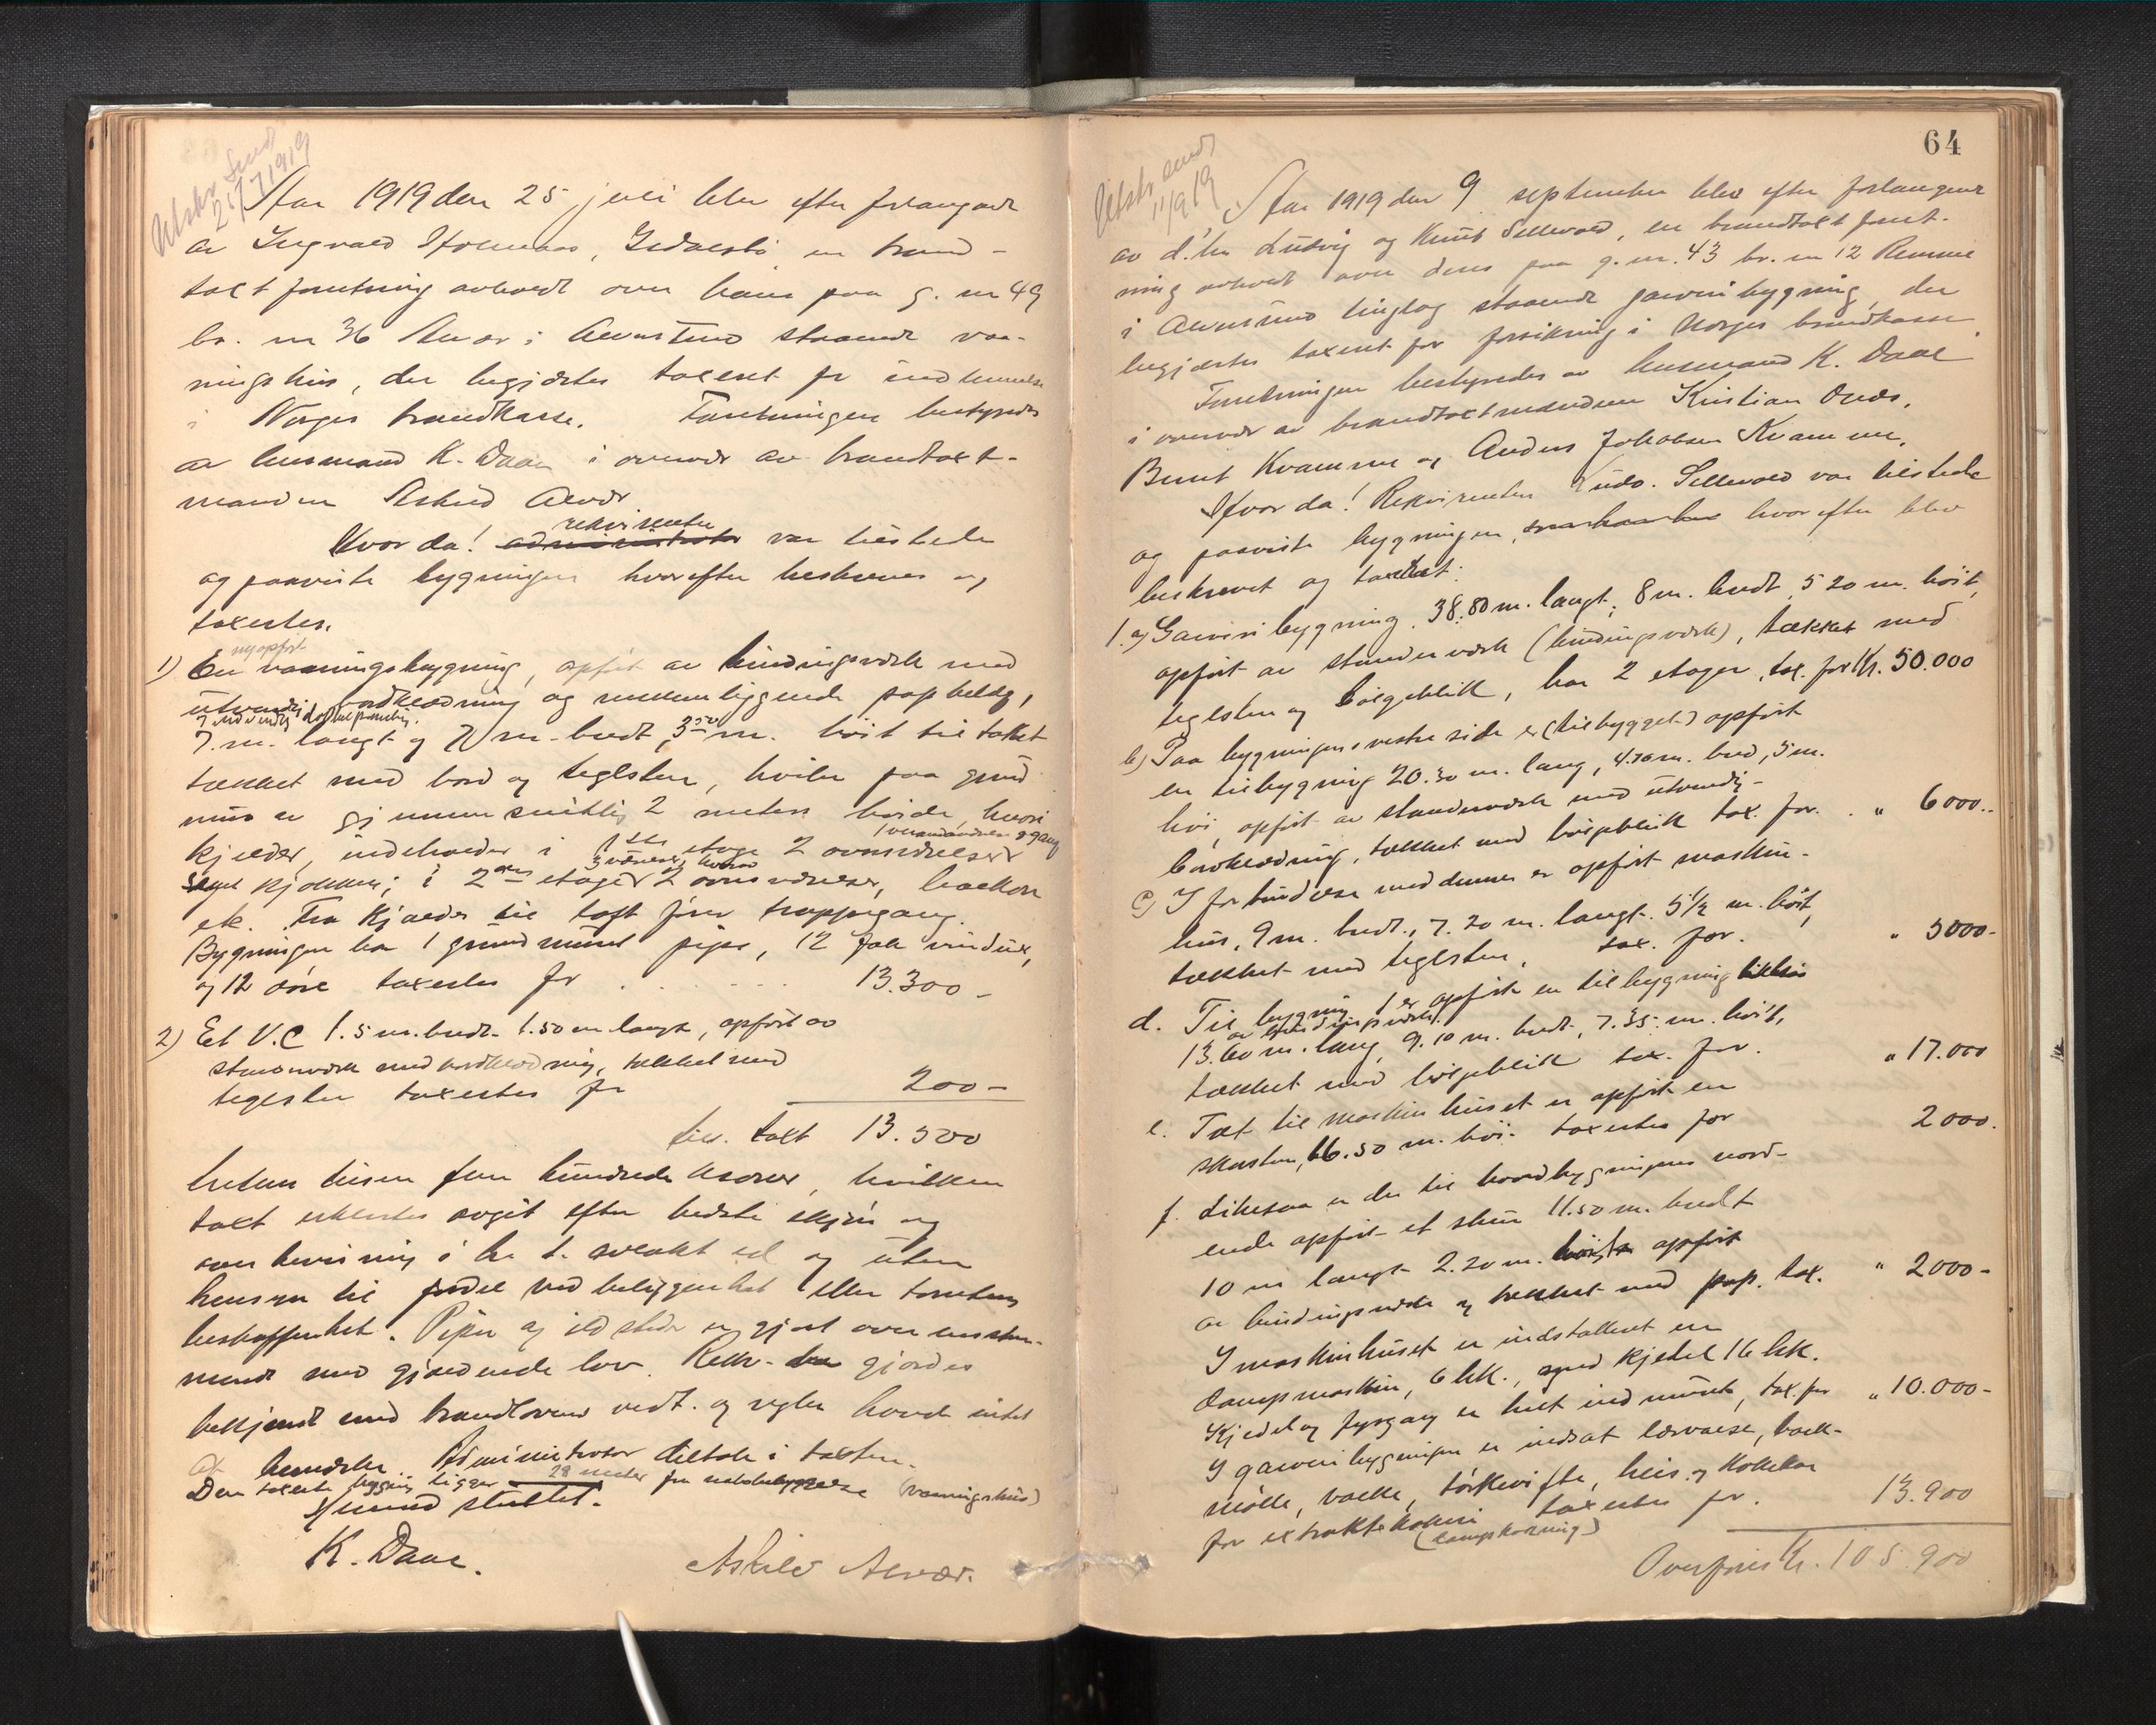 Utskr. Send
25/7 1919
Aar 1919 den 25 juli blev efter forlangende
av Ingvald Holmaas, Isdalstø en brand-
taxt forretning avholdt over hans paa g. nr 49
br. nr 36 Alvær i Alversund staaende vaa-
ningshus, der begjærtes taxert for indlemmelse
i Norges brandkasse. Forretningen bestyredes
av lensmand K. Daae i overvær av brandtaxt-
manden Askild Alvær
Hvor da! rekvirenten var tilstede
og paaviste bygningen hvorefter beskreves og
taxertes.
nyopført
1) En vaaningsbygning, opført av bindingsverk med
utvendig bordklædning og mellemliggende papbelæg,
indvendig dobbel paneling.
7 m. langt og 7 m. bredt, 3.50 m. høit til taket
tækket med bord og teglsten, hviler paa grund
mur av gjennemsnitlig 2 meters høide, hvori
kjelder, indeholder i 1ste etage 2 ovnsværelser
1 verandaværelse og gang
samt kjøkken; i 2den etage 2 ovnsværelser, balkon
3 værelser,
etc. Fra kjælder til loft fører trappegang.
Bygningen har 1 grundmuret pipe, 12 fag vinduer,
og 12 døre taxertes for . . . . . 13.300 -
2) Et V.C 1.5 m. bredt - 1.50 m langt, opført av
stenderverk med bordklædning, tækket med
teglsten taxertes for 200 -
tils. taxt 13.500
tretten tusen fem hundrede kroner, hvilken
taxt erklertes avgit efter bedste skjøn og
overbevisning i h. t. avlakt ed og uten
hensyn til fordel ved beliggenhet eller tomtens
beskaffenhet. Piper og ildsteder er gjort overensstem-
mende med gjældende lov. Rekv. gjordes
bekjendt med brandlovens vedt. og regler havde intet
at bemerke. Administrator deltok i taxten.
Den taxerte bygning ligger 28 meter fra nabobebyggelse (vaaningshus)
sluttet.
K. Daae. Askild Alvær.
64
Utskr. sendt
11/9 19
Aar 1919 den 9 september blev efter forlangende
av d'hrr Ludvig og Knut Sellevold, en brandtaxt forret-
ning avholdt over deres paa g. nr. 43 br. nr 12 Remme
i Alversund tinglag staaende garveribygning, der
begjærtes taxert for forsikring i Norges brandkasse.
Forretningen bestyredes av lensmand K. Daae
i overvær av brandtaxtmændene Kristian Øvdas,
Bernt Kvamme og Anders Jakobsen Kvamme.
Hvor da! Rekvirenten Ludv. Sellevold var tilstede
og paaviste bygningen, hvorefter blev
beskrevet og taxert:
1. a) Garveribygning 38.80 m. langt, 8 m. bredt, 5 20 m. høit,
opført av stenderverk (bindingsverk), tækket med
teglsten og bølgeblik, har 2 etager, tax. for Kr. 50.000
b) Paa bygningens vestre side er (tilbygget) opført
en tilbygning 20.30 m. lang, 4.70 m. bred, 5 m.
høi, opført av stenderverk med utvendig
bordklædning, tækket med bølgeblik tax. for. . " 6000..
c) I forbindelse med denne er opført maskin-
hus, 9 m. bredt., 7.20 m. langt. 5 1/2 m. høit,
tækket med teglsten, tax. for. " 5000-
d. Til bygning 1 er opført en tilbygning
av bindingsverk.
13.60 m. lang, 9.10 m. bredt, 7.35 m. høit,
tækket med bølgeblik tax. for. " 17.000
e. Tæt til maskinhuset er opført en
skorsten, 16.50 m. høi. taxertes for 2000.
f. Likesaa er der til hovedbygningens nord-
ende opført et skur 11.50 m. bredt
10 m langt 2.20 m. opført
av bindingsverk og tækket med pap. tax. " 2000 -
I maskinhuset er indstallert en
dampmaskin, 6 hk., med kjedel 16 hk.
Kjedel og fyrgang er helt indmuret, tax. for " 10.000-
I garveribygningen er indsat lærvalse, bark-
mølle, valke, tørkevifte, heis og kokekar
for extraktskokeri taxertes for. 13.900
(dampkokning)
Overføres Kr. 105.900